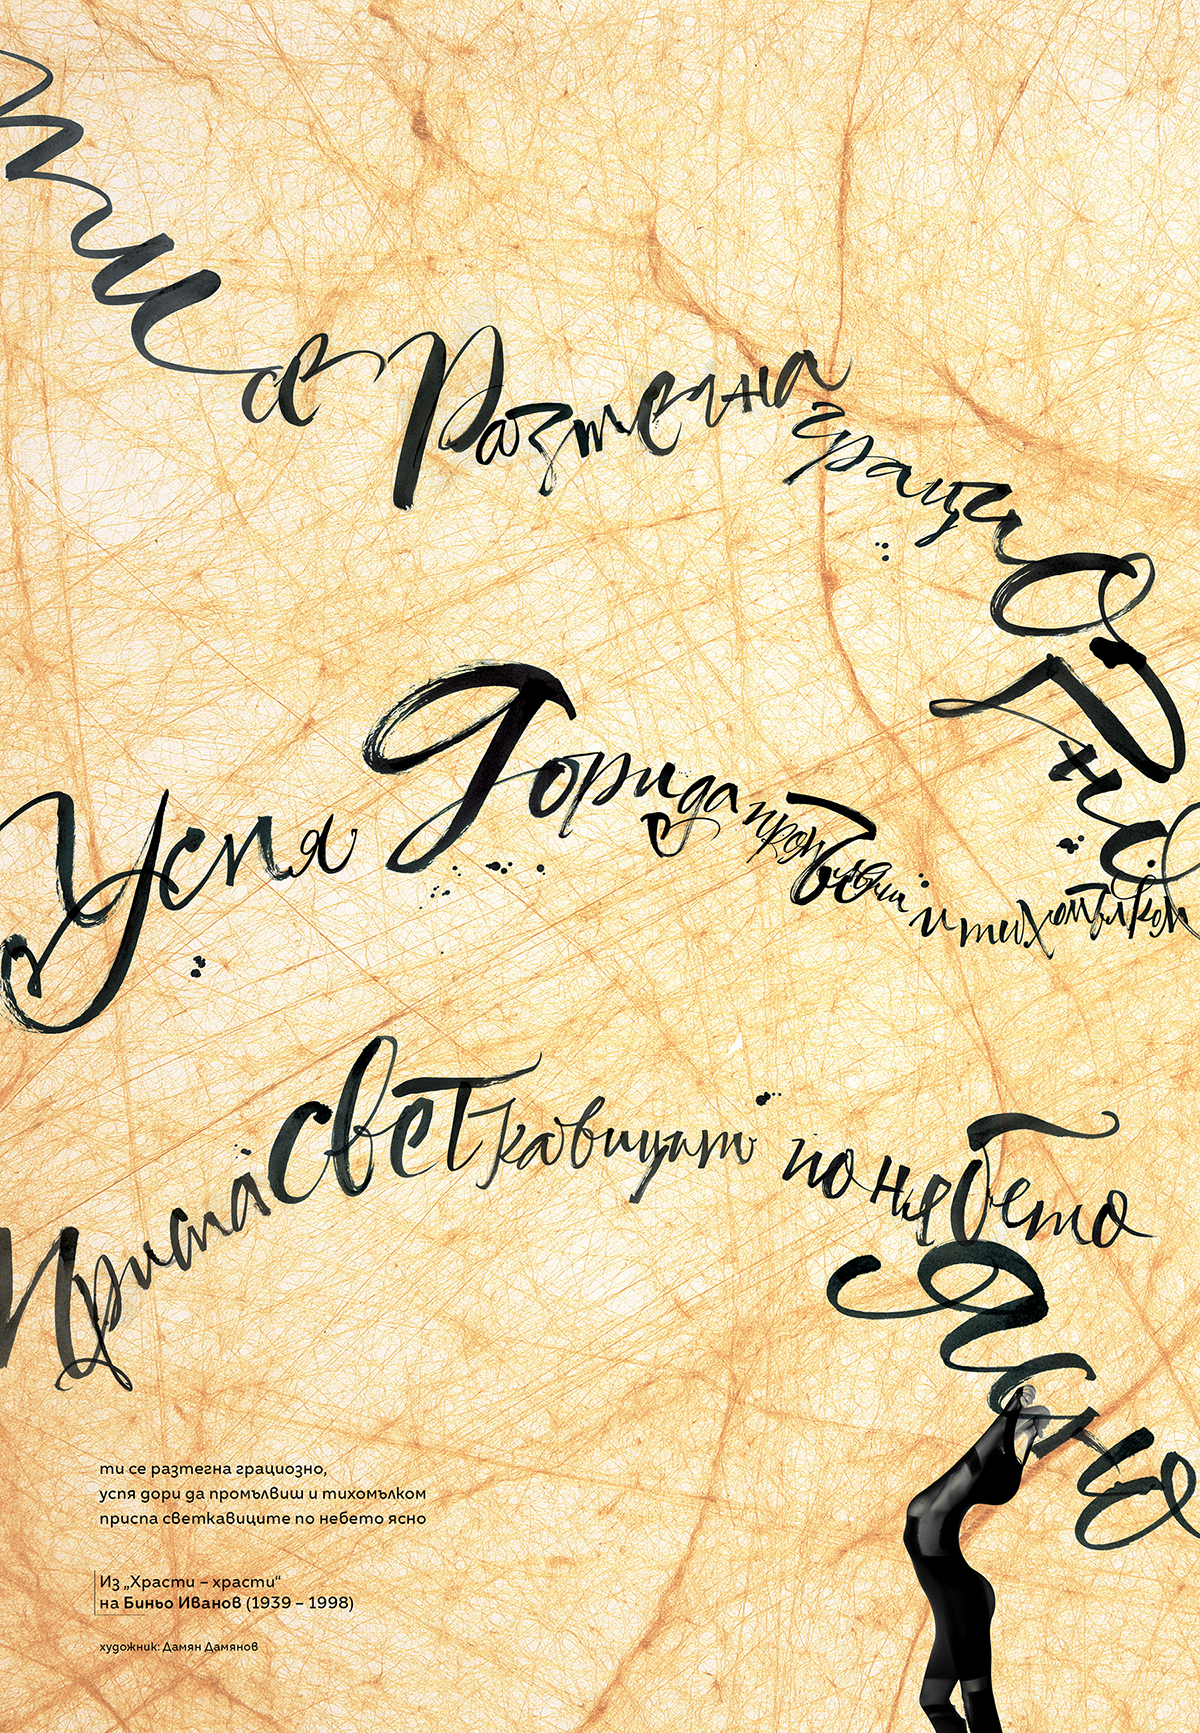 ти се Разтегна грациОзно
Успя дори да промълвиш и тихомълком
Приспа светкавиците по нябето
Ясно
ти се разтегна грациозно,
успя дори да промълвиш и тихомълком
приспа светкавиците по небето ясно
Из „Храсти – храсти“
на Биньо Иванов (1939 – 1998)
художник: Дамян Дамянов